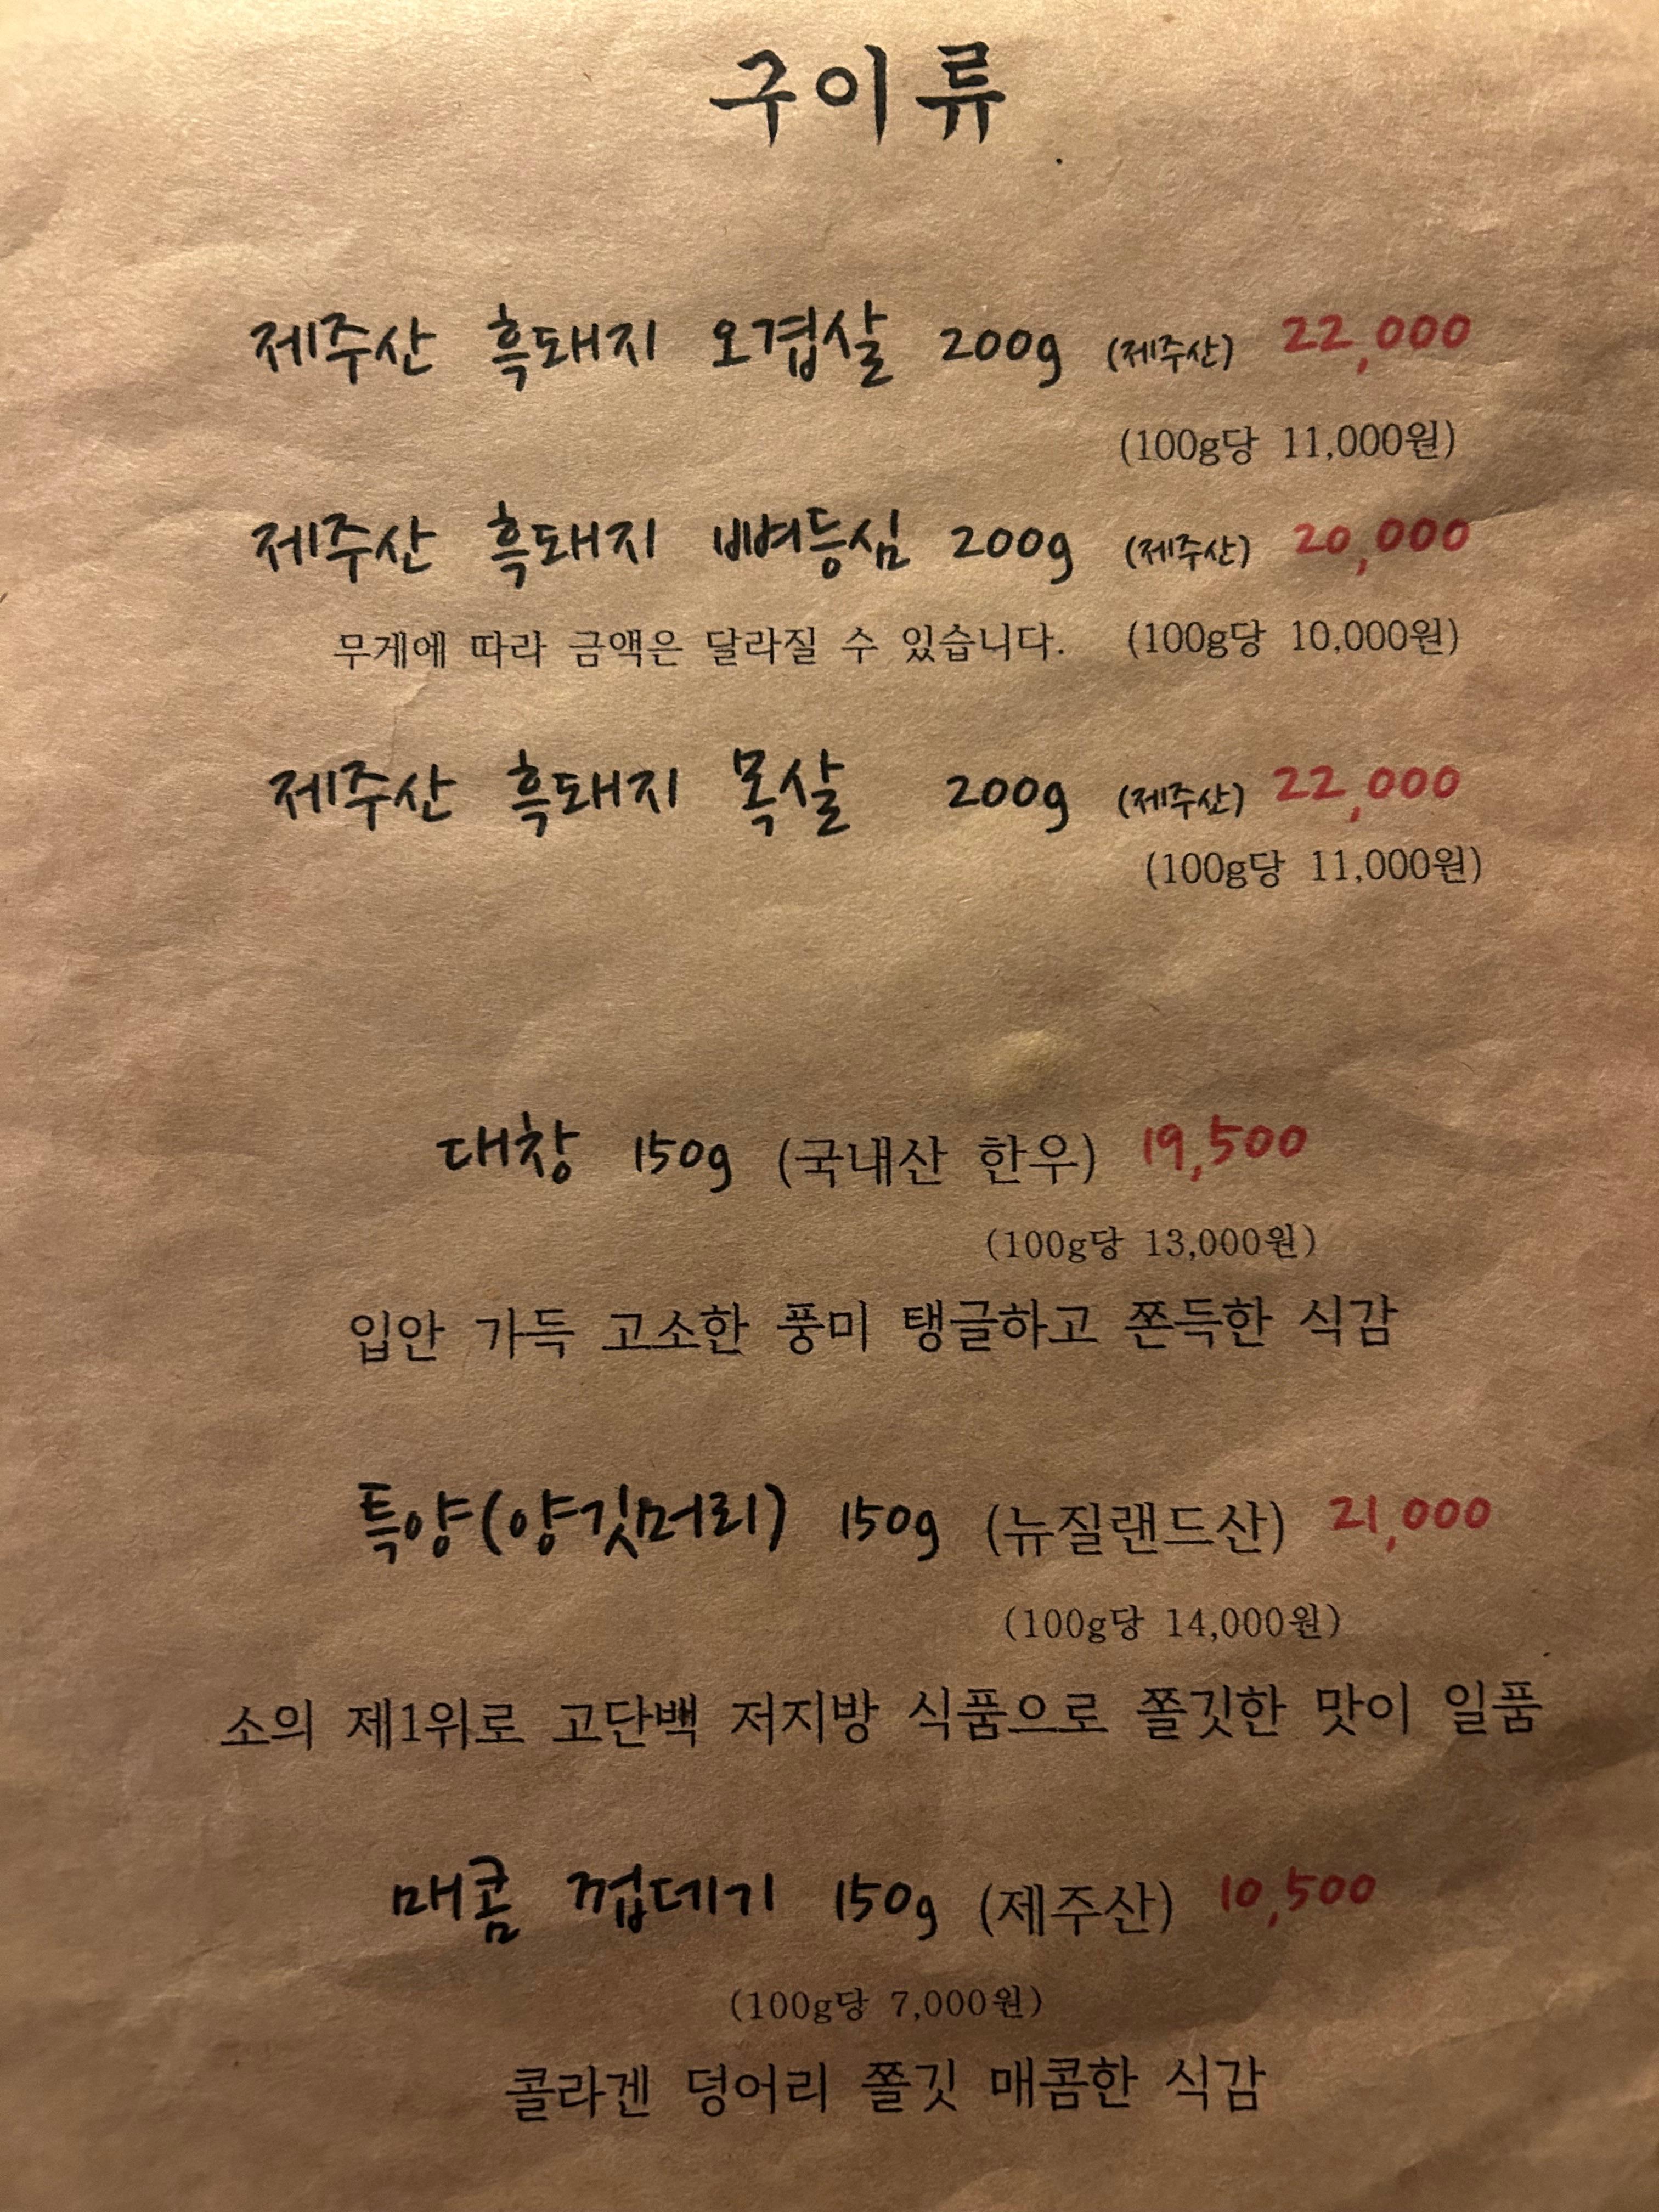 구이류
제주산 흑돼지 오겹살 200g (제주산) 22,000
(100g당 11,000원)
제주산 흑돼지 뼈등심 200g (제주산) 20,000
무게에 따라 금액은 달라질 수 있습니다. (100g당 10,000원)
제주산 흑돼지 목살 200g (제주산) 22,000
(100g당 11,000원)
대창 150g (국내산 한우) 19,500
(100g당 13,000원)
입안 가득 고소한 풍미 탱글하고 쫀득한 식감
특양(양깃머리) 150g (뉴질랜드산) 21,000
(100g당 14,000원)
소의 제1위로 고단백 저지방 식품으로 쫄깃한 맛이 일품
매콤 껍데기 150g (제주산) 10,500
(100g당 7,000원)
콜라겐 덩어리 쫄깃 매콤한 식감